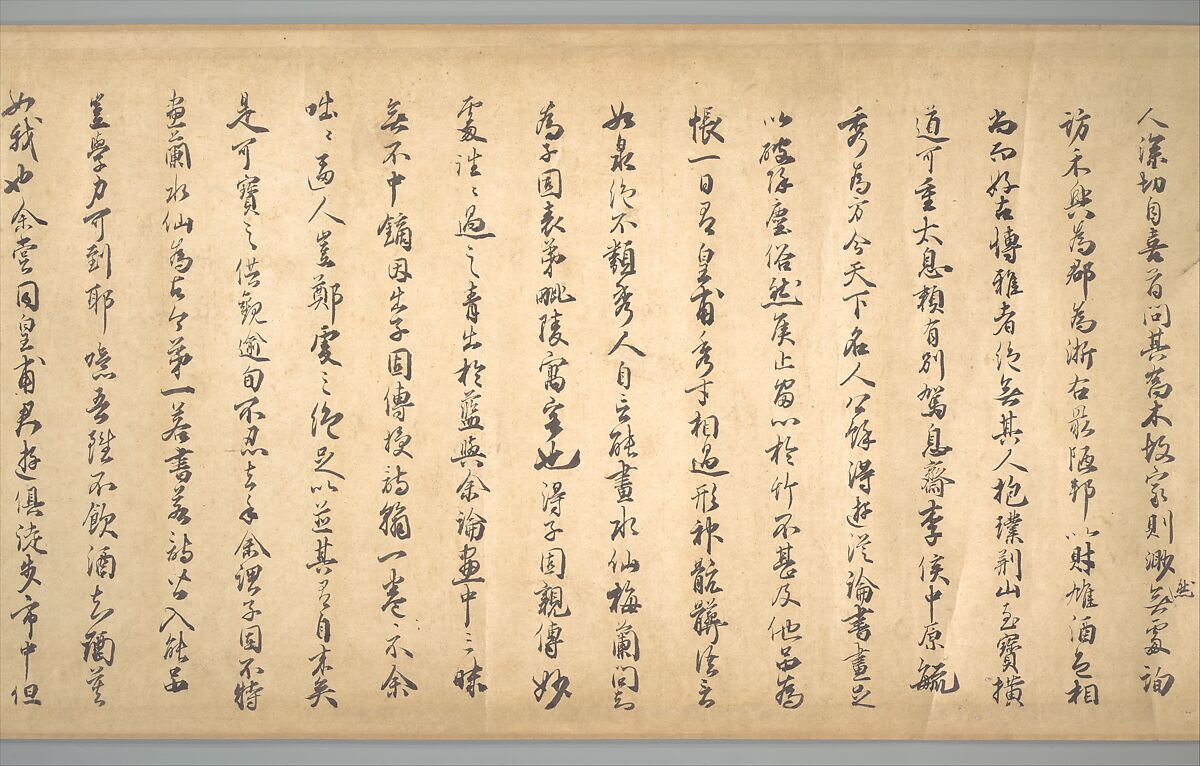 人深切自喜首問其喬木故家則渺然無處詢
訪禾興為郡為浙右最陋邦以財雄酒色相
尚而好古博雅者絕無其人抱璞荊山至寶橫
道可重太息賴有別駕息齋李侯中原毓
秀為方今天下名人公餘得遊從論書畫足
以破除塵俗然侯止留心於竹不甚及他品為
悵一日有皇甫秀才相過形神骯髒法言
如泉絕不類秀人自言能畫水仙梅蘭問知
為子固表弟毗陵寓室也得子固親傳妙
處往往過之青出於藍與余論畫中三昧
無不中鏑因出子固傳授詩稿一卷示余
咄咄逼人豈鄭虔之絕足以並其有自來矣
是可寶之供觀逾旬不忍去手余謂子固不特
畫蘭水仙為古今第一若書若詩皆入能品
豈學力可到耶噫吾雖不飲酒知酒莫
如我也余嘗同皇甫君遊俱徒步市中但